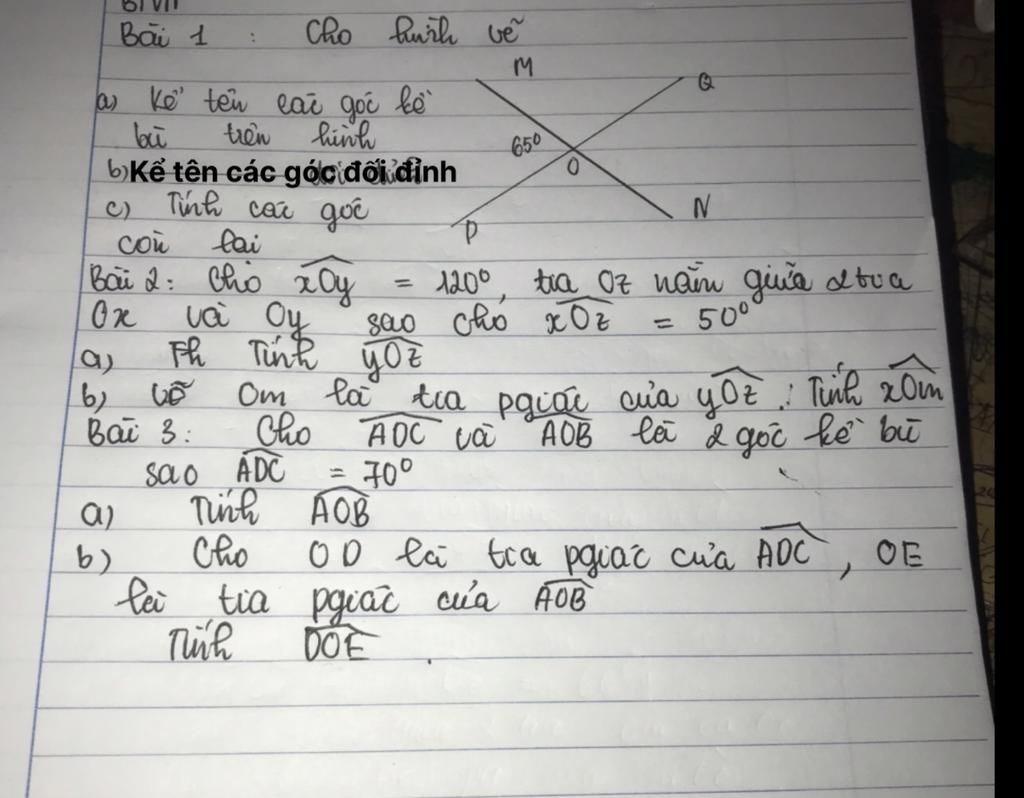 BTVN
Bài 1 : Cho hình vẽ
M
Q
a) Kể tên các góc kề
bù trên hình
65°
O
b)Kể tên các góc đối đỉnh
c) Tính các góc
N
P
còn lại
Bài 2: Cho xOy = 120°, tia Oz nằm giữa 2 tia
Ox và Oy sao cho xOz = 50°
a) Tính yOz
b) vẽ Om là tia pgiác của yOz. Tính xOm
Bài 3: Cho AOC và AOB là 2 góc kề bù
sao AOC = 70°
a) Tính AOB
b) Cho OD là tia pgiác của AOC, OE
là tia pgiác của AOB
Tính DOE.